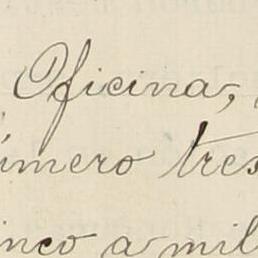 Oficina,
úmero tres
inco a mil